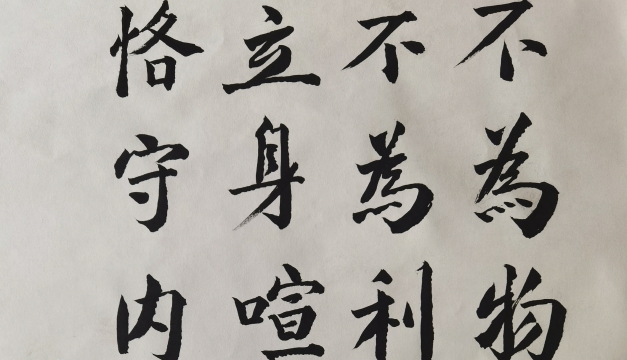 不為物
不為利
立身喧
恪守内